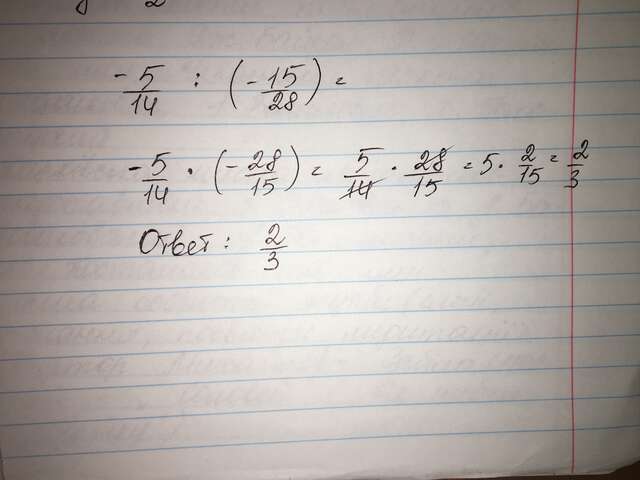 -5/14 : (-15/28) =
-5/14 · (-28/15) = 5/14 · 28/15 = 5 · 2/15 = 2/3
Ответ: 2/3